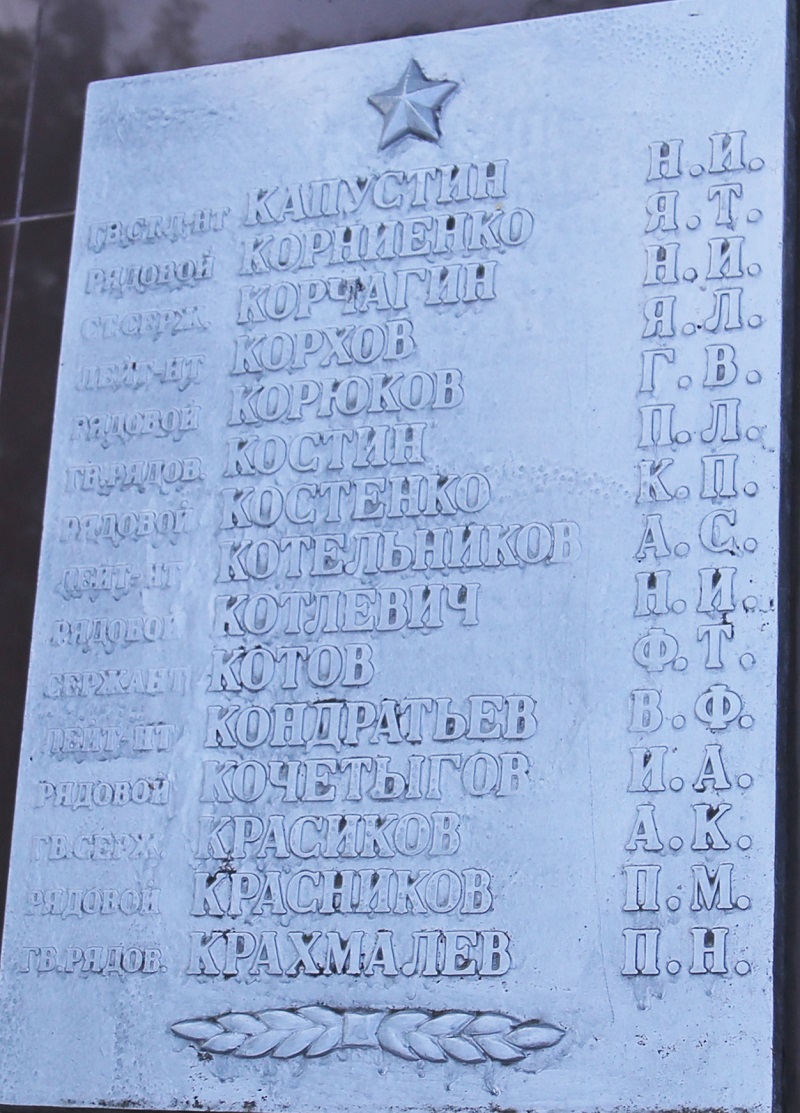 ГВ.СТ.Л-НТ КАПУСТИН Н.И.
РЯДОВОЙ КОРНИЕНКО Я.Т.
СТ.СЕРЖ. КОРЧАГИН Н.И.
ЛЕЙТ-НТ КОРХОВ Я.Л.
РЯДОВОЙ КОРЮКОВ Г.В.
ГВ.РЯДОВ. КОСТИН П.Л.
РЯДОВОЙ КОСТЕНКО К.П.
ЛЕЙТ-НТ КОТЕЛЬНИКОВ А.С.
РЯДОВОЙ КОТЛЕВИЧ Н.И.
СЕРЖАНТ КОТОВ Ф.Т.
ЛЕЙТ-НТ КОНДРАТЬЕВ В.Ф.
РЯДОВОЙ КОЧЕТЫГОВ И.А.
ГВ.СЕРЖ. КРАСИКОВ А.К.
РЯДОВОЙ КРАСНИКОВ П.М.
ГВ.РЯДОВ. КРАХМАЛЕВ П.Н.